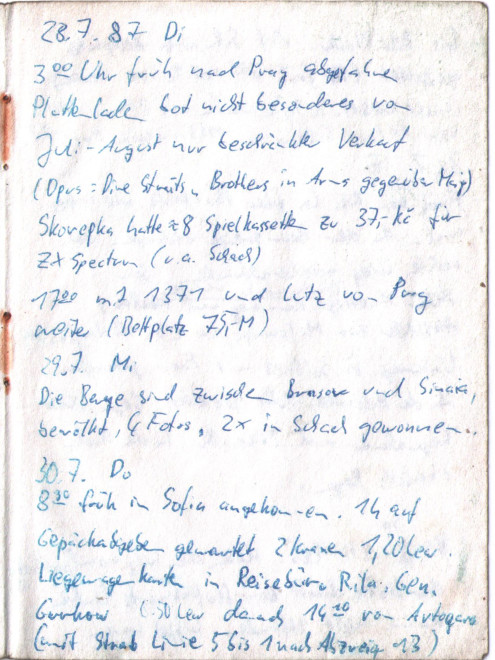 28.7.87 Di
3⁰⁰ Uhr früh nach Prag abgefahren
Plattenladen bot nicht besonderes von
Juli-August nur beschränkter Verkauf
(Opus: Dire Straits „Brothers in Arms gegenüber Maj)
Skorepka hatte ≈8 Spielkassetten zu 37,- Kč für
ZX Spectrum (u.a. Schach)
mit 1371 und Lutz von Prag
weiter (Bettplatz 75,-M)
29.7. Mi
Die Berge sind zwischen und Sinaia,
bewölkt, 4 Fotos, 2x in Schach gewonnen..
30.7. Do
früh in Sofia angekommen. 1h auf
Gepäckabgeben gewartet 2 1,20 Lew.
Liegewagenkarten in Reisebüro Rila, Gen.
Gurkow danach von Avtogara
(mit Strab Linie 5 bis 1 nach Abzweig 13)